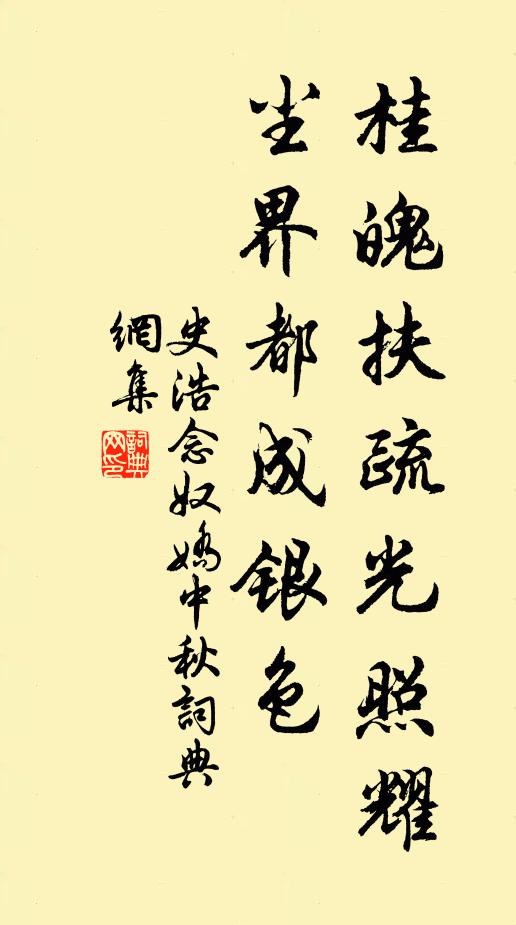 桂魄扶疏光照耀
尘界都成银色
史浩念奴娇中秋詞典
網集
詞典
网印